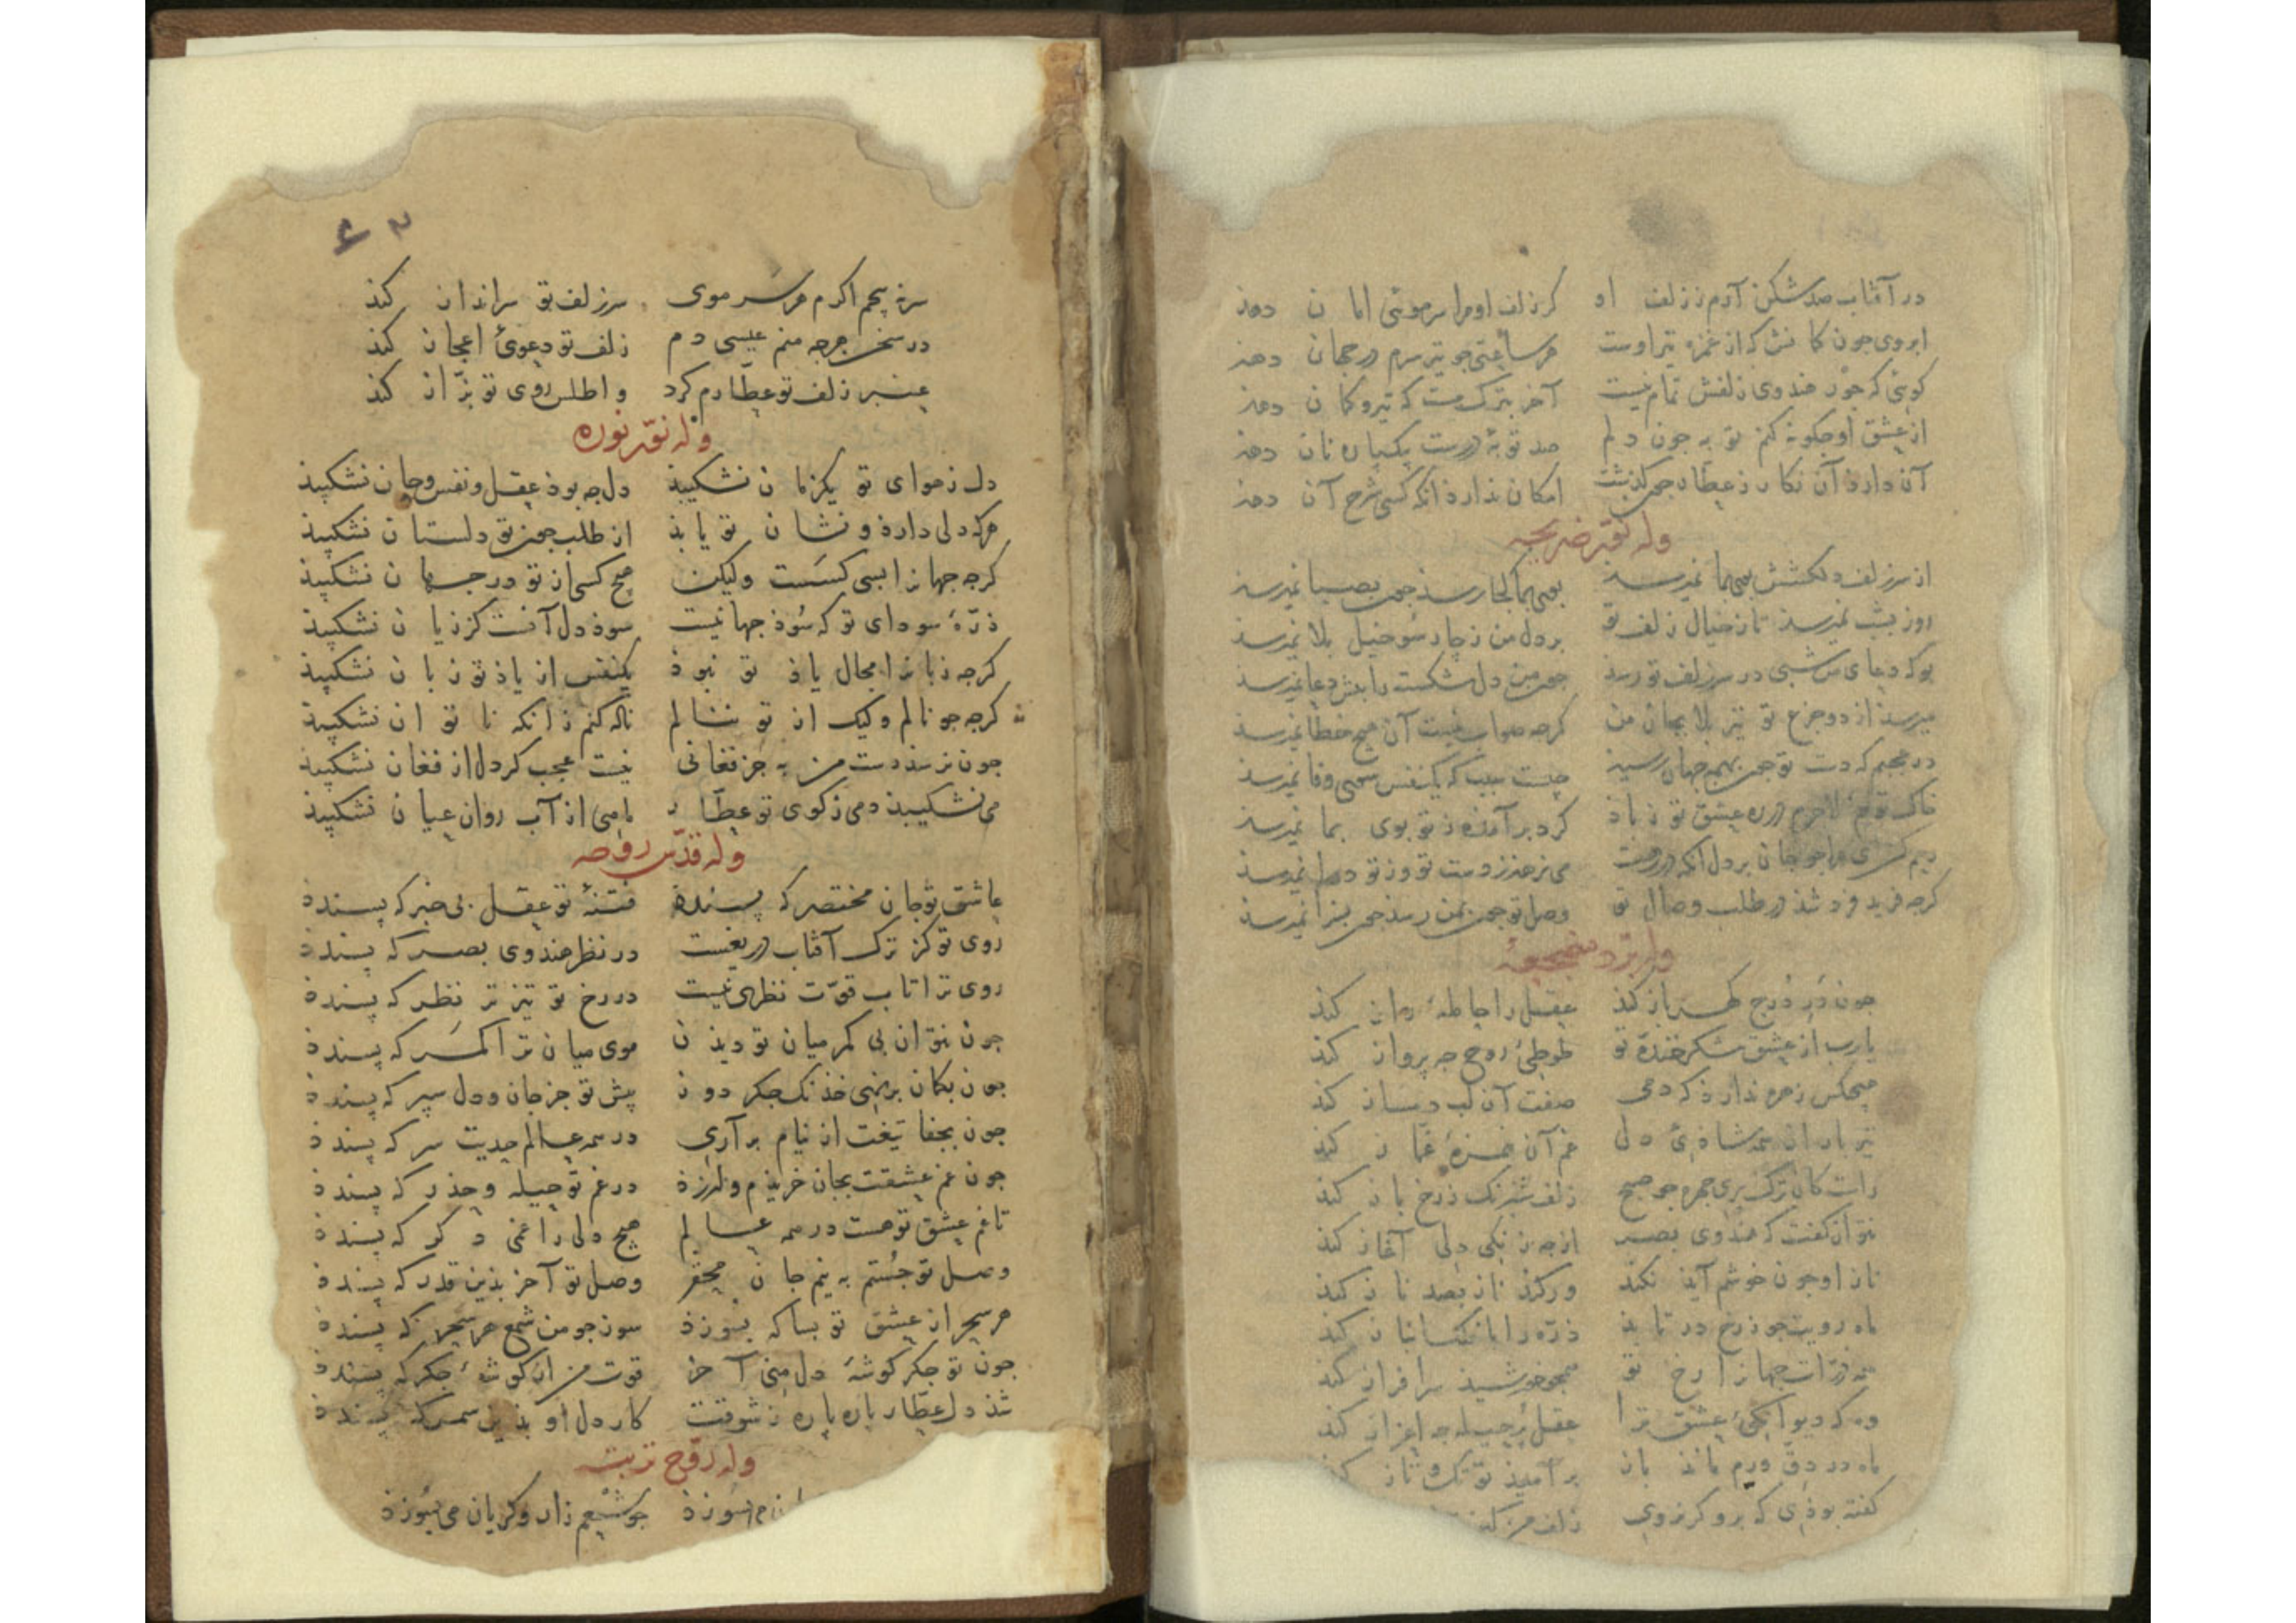 در آفتاب صد شکن آرم ز زلف او کر زلف اومرا سر موئی امان دهذ
ابروی جون کمانش که از غمزه تیر اوست هر ساعتی جو تیر سرم در جهان دهذ
کوئی که جور هندوی زلفش تمام نیست آخر بترک مست که تیر و کمان دهذ
از عشق او جکونه کنم توبه جون دلم صد توبهٔ درست بیکپاره نان دهذ
آن دارذ آن نکار ز عطار جون کذشت امکان نذارذ انکه کسی شرح آن دهذ
وله نوّر ضریحه
از سر زلف دلکشش بوی بما نمیرسذ بوی بما کجا رسذ جون بصبا نمیرسذ
روز بشب نمیرسذ تا ز خیال زلف تو بر دل من ز چار سو خیل بلا نمیرسذ
بو که دعای من شبی در سر زلف تو رسذ جون من دل شکسته را بیش دعا نمیرسذ
میرسذ از دو جزع تو تیر بلا بجان من کرجه صواب نیست آن هیج خطا نمیرسذ
در عجبم که دست تو جون بهمه جهان رسیذ جیست سبب که یکنفس سوی وفا نمیرسذ
خاک توم لاجرم در ره عشق تو ز باذ کرد بر آمذه ز تو بوی بما نمیرسذ
می نرهذ ز دست تو وز تو دوا نمیرسذ
کرجه فریذ فرد شذ در طلب وصال تو وصل تو جون بمن رسذ جون بسزا نمیرسذ
وله برّد مضجعهٔ
جون دَرِ دُرج کهر باز کنذ عقل را حاملهٔ راز کنذ
یارب از عشق شکر خندهٔ تو طوطیٔ روح جه پرواز کنذ
هیجکس زهره نذارذ که دمی صفت آن لب دمساز کنذ
تیر باران همه شاذیٔ دل غم آن غمزهٔ غماز کنذ
راست کان ترک پری جهره جو صبح زلف شبرنک ز رخ باز کنذ
نتوان کفت که هندوی بصر از جه زنکی دلی آغاز کنذ
ناز او جون خوشم آیذ نکنذ ور کنذ ناز بصد ناز کنذ
ماه رویت جو ز رخ در تابذ ذرّه را با فلک انباز کنذ
همه ذرّات جهان را رخ تو همجو خورشیذ سرافراز کنذ
وه که دیوانکیٔ عشق ترا عقل پُرحیله جه اعزاز کنذ
ماه در دقّ و ورم مانذ باز بر امیذ تو تک و تاز کنذ
کفته بوذی که برو کز نروی زلف من
سر نه پیجم اکرم هر سر موی سر زلف تو سرانداز کنذ
در سخن جرجه منم عیسی دم زلف تو دعویٔ اعجاز کنذ
عنبر زلف تو عطّارم کرد و اطلس روی تو بزّاز کنذ
وله نوّر نوره
دل ز هوای تو یکزمان نشکیبذ دل جه بوذ عقل و نفس و جان نشکیبذ
هرکه دلی دارذ و نشان تو یابذ از طلب جون تو دلستان نشکیبذ
کرجه جهانرا بسی کسست ولیکن هیج کسی از تو در جهان نشکیبذ
ذرّهٔ سودای تو که سُوذ جهانیست سوذ دل آنست کز زیان نشکیبذ
کرجه زبانرا مجال یاذ تو نبوذ یکنفس از یاذ تو زبان نشکیبذ
کرجه جو نالم ولیک از تو ننالم ناله کنم زانکه ناتوان نشکیبذ
جون نرسذ دست من به جز فغانی نیست عجب کر دل از فغان نشکیبذ
می نشکیبذ دمی ز کوی تو عطّار ماهی از آب روان عیان نشکیبذ
وله قدّس روحه
عاشق تو جان مختصر که پسندذ فتنهٔ تو عقل بی خبر که پسندذ
روی تو کز ترک آفتاب دریغست در نظر هندوی بصر که پسندذ
روی ترا تاب قوّت نظری نیست در رخ تو تیزتر نظر که پسندذ
جون نتوان بی کمر میان تو دیذن موی میان ترا کمر که پسندذ
جون بکمان برنهی خذنک جکر دوز پیش تو جز جان و دل سپر که پسندذ
جون بجفا تیغت از نیام برآری در همه عالم حدیث سر که پسندذ
جون غم عشقت بجان خریذم و لرزذ در غم تو حیله و حذر که پسندذ
تا غم عشق تو هست در همه عالم هیج دلی را غمی دکر که پسندذ
وصل تو جُستم به نیم جان محقر وصل تو آخر بذین قدر که پسندذ
هر سحر از عشق تو بسا که بسوزذ سوز جو من شمع هر سحر که پسندذ
جون تو جکر کوشهٔ دل منی آخر قوت من از کوشهٔ جکر که پسندذ
شذ دل عطّار پاره پاره ز شوقت کار دل او بذین سمر که پسندذ
وله روّح تربته
می سوزذ جو شمعم زار و کریان می سُوزذ